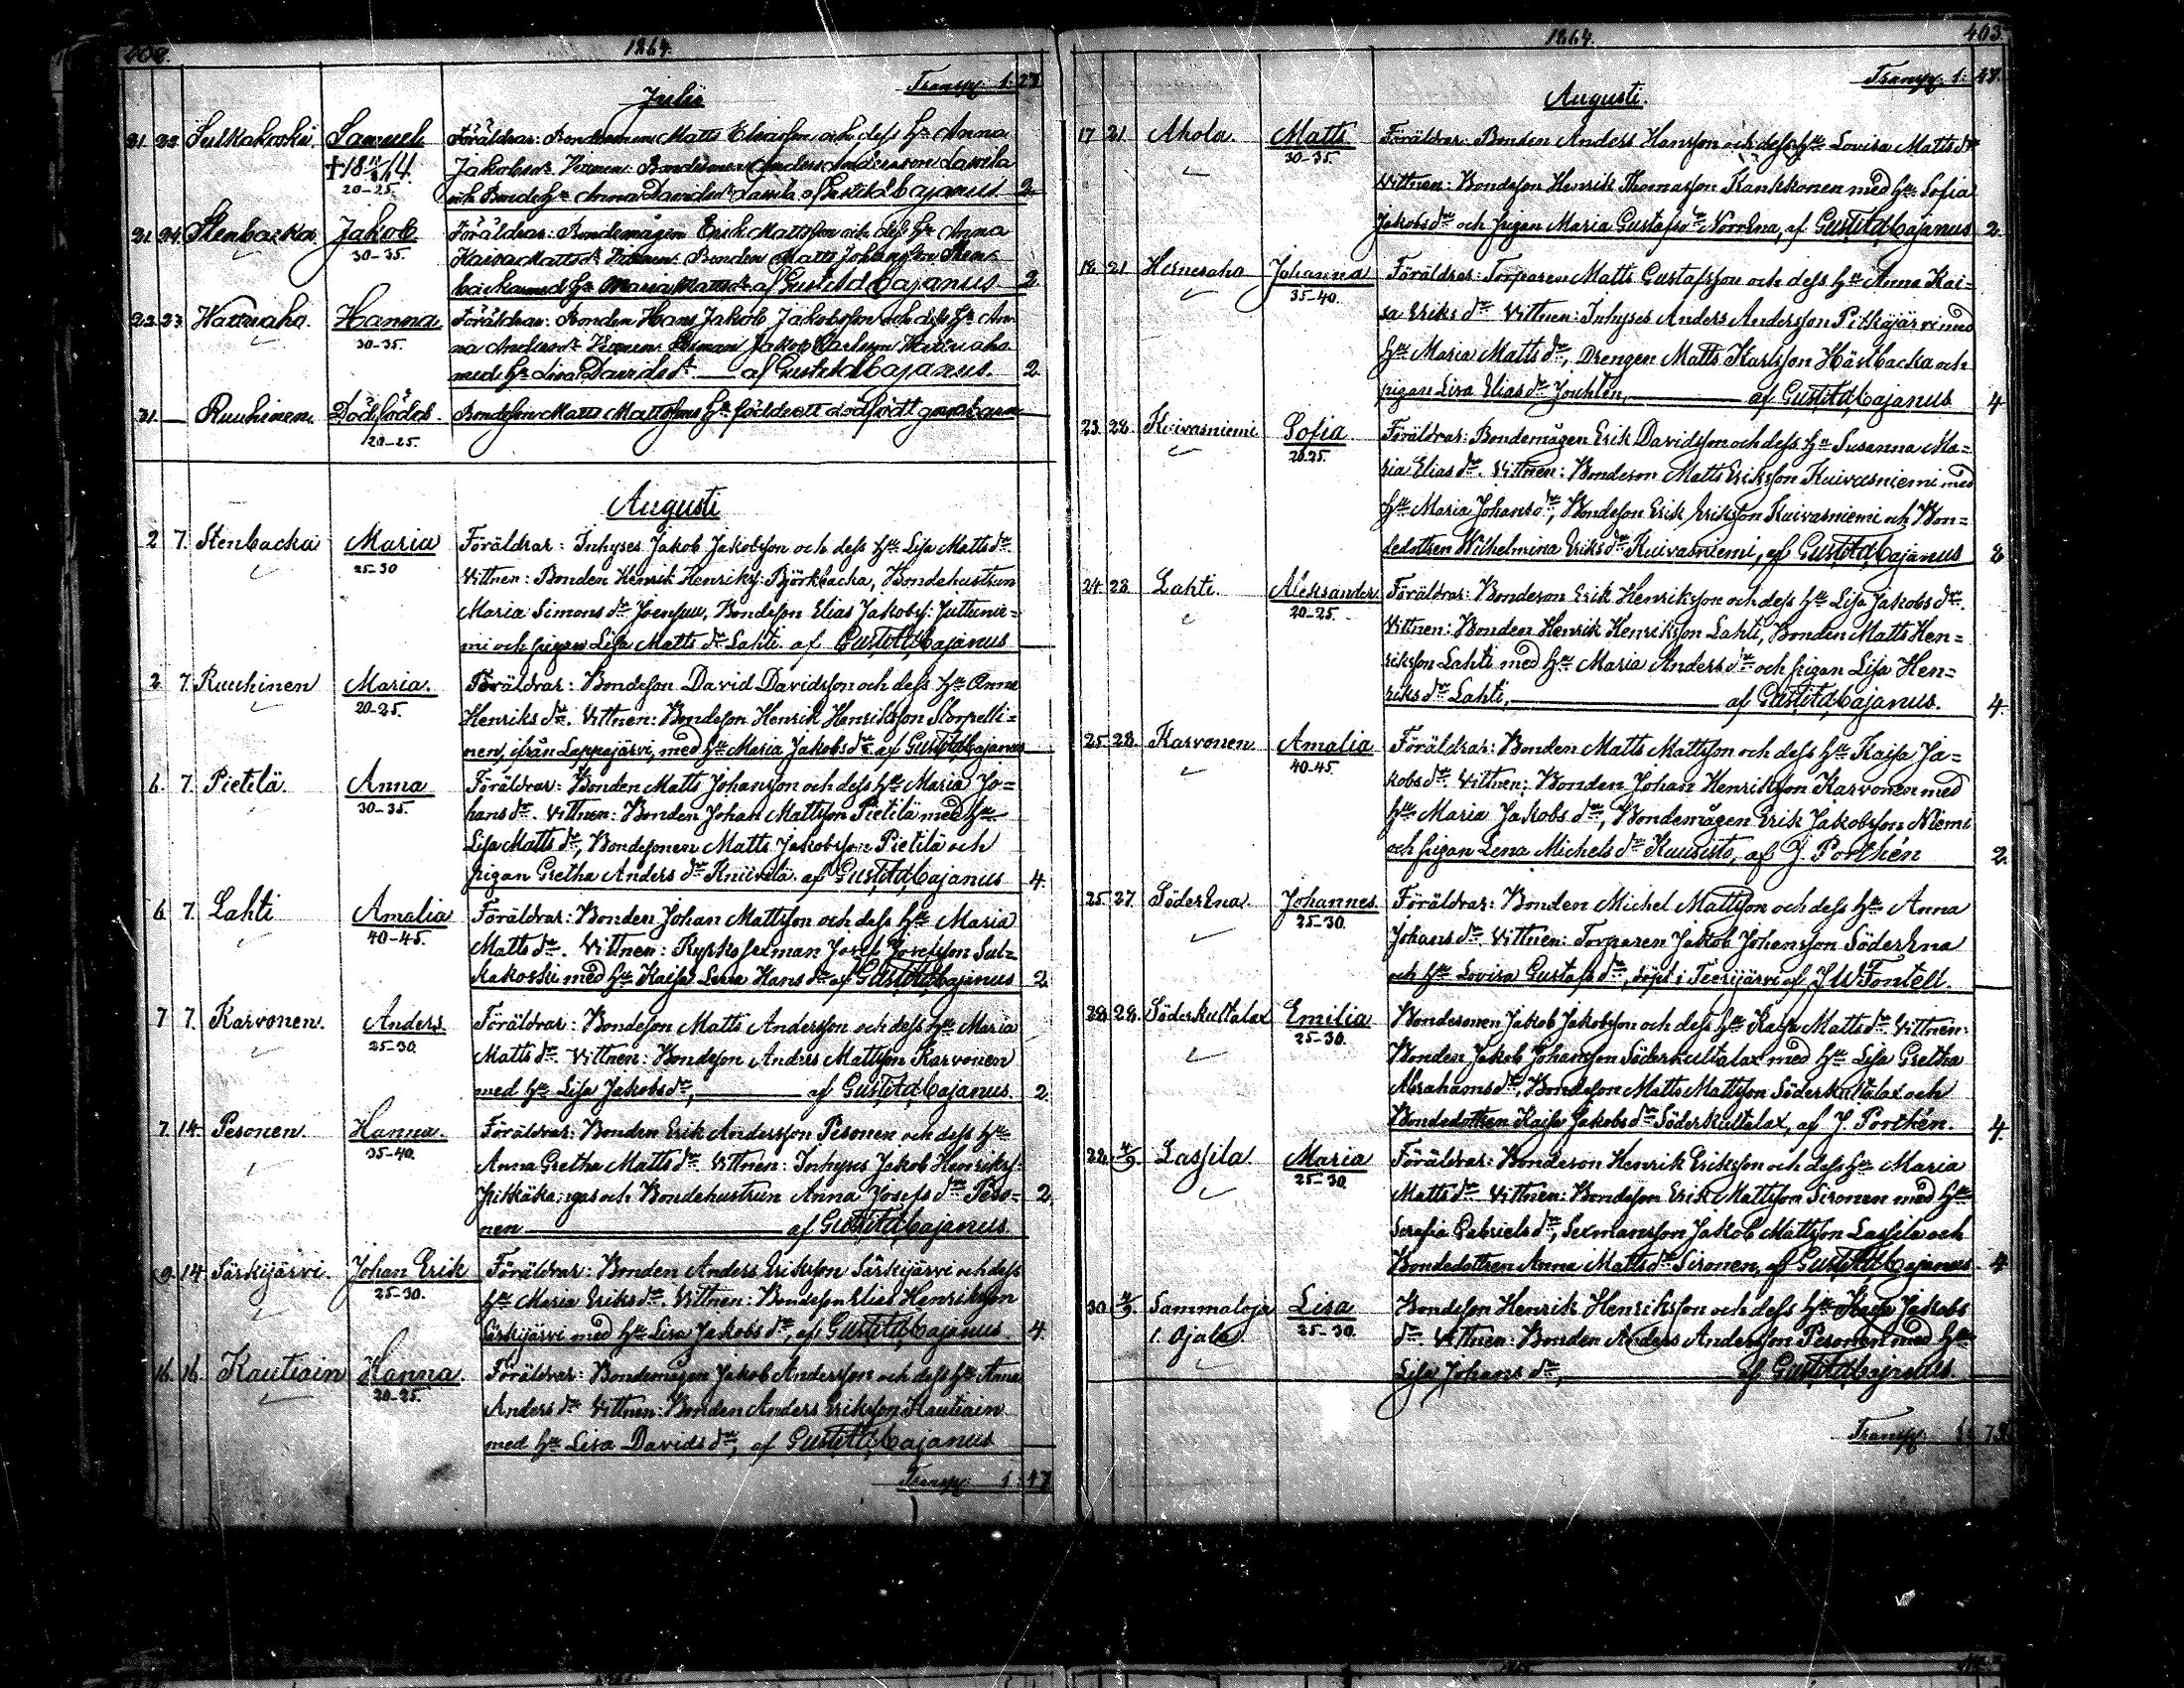 402.
1864.
Transp. 1: 27
Julii
21. 22. Sulkakoski. Samuel Föräldrar: Bondesonen Matts Eliasson och dess Hu Anna
†18 64. Jakobsdr. Vittnen: Bondesonen Anders Andersson Lassila
20-25. och Bondehu Anna Davidsdr Lassila af Gust. Ad. Cajanus. 2
21. 24. Stenbacka Jakob Föräldrar: Bondemågen Erik Mattsson och dess Hu Anna
30-35. Kaisa Mattsdr. Vittnen: Bonden Matts Johansson Sten-
backa med Hu Maria Mattsdr af Gust. Ad. Cajanus 2
22. 23. Hanna. Föräldrar: Bonden Hans Jakob Jakobsson och dess Hu An-
30-35. na Andersdr. Vittnen: Jakob
med Hu Lisa Davidsdr. af Gust. Ad. Cajanus. 2.
31. Ruuhinen. Dödfödd. Bondeson Matts Mattssons Hu födde ett dödfödt gossebarn
20-25.
Augusti
2 7. Stenbacka Maria Föräldrar: Inhyses Jakob Jakobsson och dess Hu Lisa Mattsdr.
25-30 Vittnen: Bonden Henrik Henriks: Björkbacka, Bondehustrun
Maria Simonsdr Joensuu, Bondeson Elias Jakobs: Juttunie=
mi och pigan Lisa Mattsdr Lahti. af Gust. Ad. Cajanus
2 7. Ruuhinen Maria. Föräldrar: Bondeson David Davidsson och dess Hu Anna
20-25. Henriksdr. Vittnen: Bondeson Henrik Henriksson
nen, ifrån Lappajärvi, med Hu Maria Jakobsdr. af Gust. Ad. Cajanus
6. 7. Pietilä. Anna Föräldrar: Bonden Matts Johansson och dess Hu Maria Jo=
30-35. hansdr. Vittnen: Bonden Johan Mattsson Pietilä med Hu
Lisa Mattsdr, Bondesonen Matts Jakobsson Pietilä och
pigan Gretha Andersdr Kniivilä. af Gust. Ad. Cajanus 4.
6 7. Lahti Amalia Föräldrar: Bonden Johan Mattsson och dess Hu Maria
40-45. Mattsdr. Vittnen: Kyrkosexman Josef Josefsson Sul=
kakoski med Hu Kaisa Lena Hansdr af Gust. Ad. Cajanus 2
7 7. Karvonen. Anders Föräldrar: Bondeson Matts Andersson och dess Hu Maria
25-30. Mattsdr. Vittnen: Bondeson Andres Mattsson Karvonen
med Hu Lisa Jakobsdr, af Gust. Ad. Cajanus. 2.
7. 14. Pesonen. Hanna. Föräldrar: Bonden Erik Andersson Pesonen och dess Hu
35-40. Anna Gretha Mattsdr. Vittnen: Inhyses Jakob Henriks:
Pitkäkangas och Bondehustrun Anna Josefsdr Peso= 2
nen af Gust. Ad. Cajanus.
9. 14. Särkijärvi. Johan Erik Föräldrar: Bonden Anders Eriksson Särkijärvi och dess
25-30. Hu Maria Eriksdr. Vittnen: Bondeson Elias Henriksson
Särkijärvi med Hu Lisa Jakobsdr, af Gust. Ad. Cajanus 4.
16. 16. Kautiain Hanna. Föräldrar: Bondemågen Jakob Andersson och dess Hu Anna
20-25. Andersdr Vittnen: Bonden Anders Eriksson Kautiain
med Hu Lisa Davidsdr, af Gust. Ad. Cajanus
Transp. 1: 47
1864.
403.
Transp. 1: 47.
Augusti.
17 21. Ahola. Matts Föräldrar: Bonden Anders Hansson och dess Hu Lovisa Mattsdr
30-35. Vittnen: Bondeson Henrik Thomasson Kankkonen med Hu Sofia
Jakobsdr och pigan Maria Gustafsdr Norrena, af Gust. Ad. Cajanus 2.
18 21 Hernesaho Johanna Föräldrar: Torparen Matts Gustafsson och dess Hu Anna Kai=
35-40. sa Eriksdr Vittnen: Inhyses Anders Andersson Pitkäjärvi med
Hu Maria Mattsdr, Drengen Matts Karlsson Härbacka och
pigan Lisa Eliasdr Jouhten, af Gust. Ad. Cajanus 4
23. 28. Kuivasniemi Sofia Föräldrar: Bondemågen Erik Davidsson och dess Hu Susanna Ma=
20-25. ria Eliasdr. Vittnen: Bondeson Matts Eriksson Kuivasniemi med
Hu Maria Johansdr, Bondeson Erik Eriksson Kuivasniemi och Bon=
dedottren Wilhelmina Eriksdr Kuivasniemi, af Gust. Ad. Cajanus 8
24. 28. Lahti. Aleksander Föräldrar: Bondeson Erik Henriksson och dess Hu Lisa Jakobsdr.
20-25. Vittnen: Bonden Henrik Henriksson Lahti, Bonden Matts Hen=
riksson Lahti med Hu Maria Andersdr och pigan Lisa Hen=
riksdr Lahti, af Gust. Ad. Cajanus. 4.
25. 28. Karvonen Amalia Föräldrar: Bonden Matts Mattsson och dess Hu Kaisa Ja=
40-45. kobsdr. Vittnen: Bonden Johan Henriksson Karvonen med
Hu Maria Jakobsdr, Bondemågen Erik Jakobsson Niemi
och pigan Lena Michelsdr Kuusisto, af J. Porthén 2.
25. 27. Söderena. Johannes. Föräldrar: Bonden Michel Mattsson och dess Hu Anna
25-30. Johansdr. Vittnen: Torparen Jakob Johansson Söderena
och Hu Lovisa Gustafsdr, döpt i Teerijärvi af J W Fontell.
28. 28. Söderkultalax Emilia Bondesonen Jakob Jakobsson och dess Hu Kaisa Mattsdr Vittnen:
25-30. Bonden Jakob Johansson Söderkultalax med Hu Lisa Gretha
Abrahamsdr, Bondeson Matts Mattsson Söderkultalax och
Bondedottren Kaisa Jakobsdr Söderkultalax, af J. Porthén. 4.
22. 4/9 Lassila. Maria Föräldrar: Bondeson Henrik Eriksson och dess Hu Maria
25-30. Mattsdr Vittnen: Bondeson Erik Mattsson Sironen med Hu
Serafia Gabrielsdr, Sexmansson Jakob Mattsson Lassila och
Bondedottren Anna Mattsdr Sironen, af Gust. Ad. Cajanus 4
30. 4/9. Sammaloja Lisa Bondeson Henrik Henriksson och dess Hu Kaisa Jakobs
l. Ojala. 25-30. dr. Vittnen: Bonden Anders Andersson Pesonen med Hu
Lisa Johansdr, af Gust. Ad. Cajanus
Transp. 1: 75